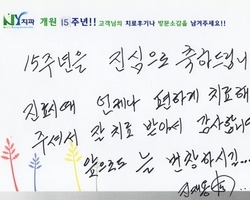 NY치과 개원 15주년!! 고객님의 치료후기나 방문소감을 남겨주세요!!
15주년을 진심으로 축하드립니
진료때 언제나 편하게 치료해
주셔서 잘 치료 받아서 감사합니
앞으로도 늘 번창하시길...